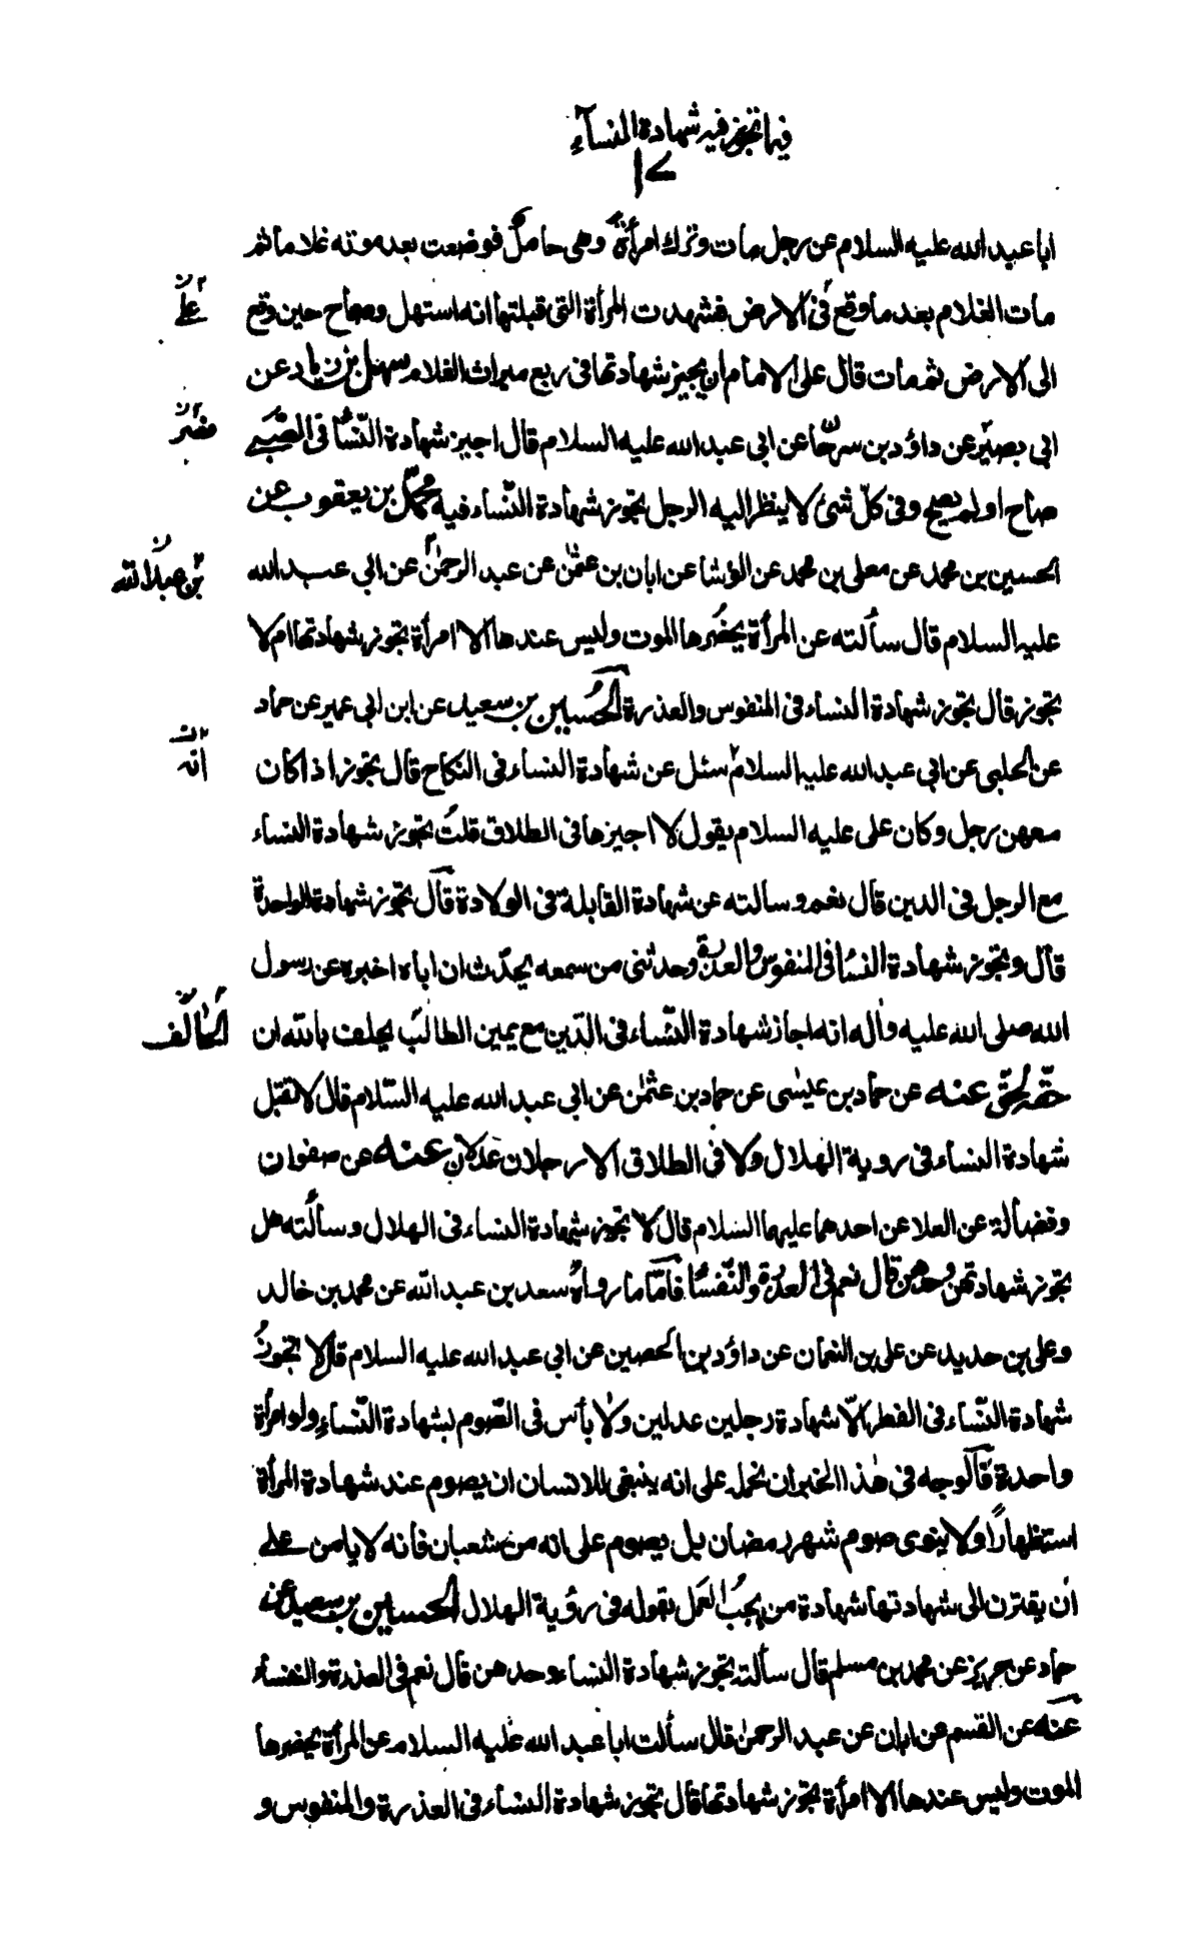 فيما تجوز فيه شهادة النساء
١٧
ابا عبد الله عليه السلام عن رجل مات وترك امرأة وهى حامل فوضعت بعد موته غلاما ثم
مات الغلام بعد ما وقع فى الارض فشهدت المرأة التى قبلتها انه استهل وصاح حين وقع
على
الى الارض ثم مات قال على الامام ان يجيز شهادتها فى ربع ميراث الغلام سهل بن زياد عن
ابى بصير عن داؤد بن سرحان عن ابى عبد الله عليه السلام قال اجيز شهادة النّساء فى الصّبى
صاح او لم يصح وفى كلّ شئ لا ينظر اليه الرجل تجوز شهادة النّساء فيه محمّد بن يعقوب عن
الحسين بن محمد عن معلى بن محمد عن الوشا عن ابان بن عثمٰن عن عبد الرحمٰن عن ابى عبد الله
بن عبد الله
عليه السلام قال سألته عن المرأة يحضرها الموت وليس عندها الا امرأة تجوز شهادتها ام لا
تجوز قال تجوز شهادة النساء فى المنفوس والعذرة الحسين بن سعيد عن ابن ابى عمير عن حماد
عن الحلبى عن ابى عبد الله عليه السلام سئل عن شهادة النساء فى النكاح قال تجوز اذا كان
انه
معهن رجل وكان على عليه السلام يقول لا اجيزها فى الطلاق قلت تجوز شهادة النساء
مع الرجل فى الدين قال نعم وسالته عن شهادة القابلة فى الولادة قال تجوز شهادة الواحدة
قال وتجوز شهادة النساء فى المنفوس والعذرة وحدثنى من سمعه يحدّث ان اباه اخبره عن رسول
الله صلى الله عليه واله انه اجاز شهادة النّساء فى الدّين مع يمين الطالب يحلف بالله ان
حقّه لحقّ عنه عن حماد بن عيسى عن حماد بن عثمٰن عن ابى عبد الله عليه السّلام قال لا تقبل
شهادة النساء فى روية الهلال ولا فى الطلاق الا رجلان عدلان عنه عن صفوان
وفضالة عن العلا عن احدهما عليهما السلام قال لا تجوز شهادة النساء فى الهلال وسألته هل
تجوز شهادتهن وحدهن قال نعم فى العذرة والنّفساء فامّا ما رواه سعد بن عبد الله عن محمد بن خالد
وعلى بن حديد عن على بن النعمان عن داؤد بن الحصين عن ابى عبد الله عليه السلام قال لا تجوز
شهادة النّساء فى الفطر الّا شهادة رجلين عدلين ولا بأس فى الصّوم بشهادة النّساءِ ولو امرأة
واحدة فالوجه فى هٰذا الخبر ان نحمله على انه ينبغى للانسان ان يصوم عند شهادة المرأة
استظهارًا ولا ينوى صوم شهر رمضان بل يصوم على انه من شعبان فانه لا يامن على
أن يقترن الى شهادتها شهادة من يجب العمل بقوله فى رؤية الهلال الحسين بن سعيد عن
حماد عن حريز عن محمد بن مسلم قال سألته تجوز شهادة النساء وحدهن قال نعم فى العذرة والنفساء
عنه عن القسم عن ابان عن عبد الرحمٰن قال سألت ابا عبد الله عليه السلام عن المرأة يحضرها
الموت وليس عندها الا امرأة تجوز شهادتها قال تجوز شهادة النساء فى العذرة والمنفوس و